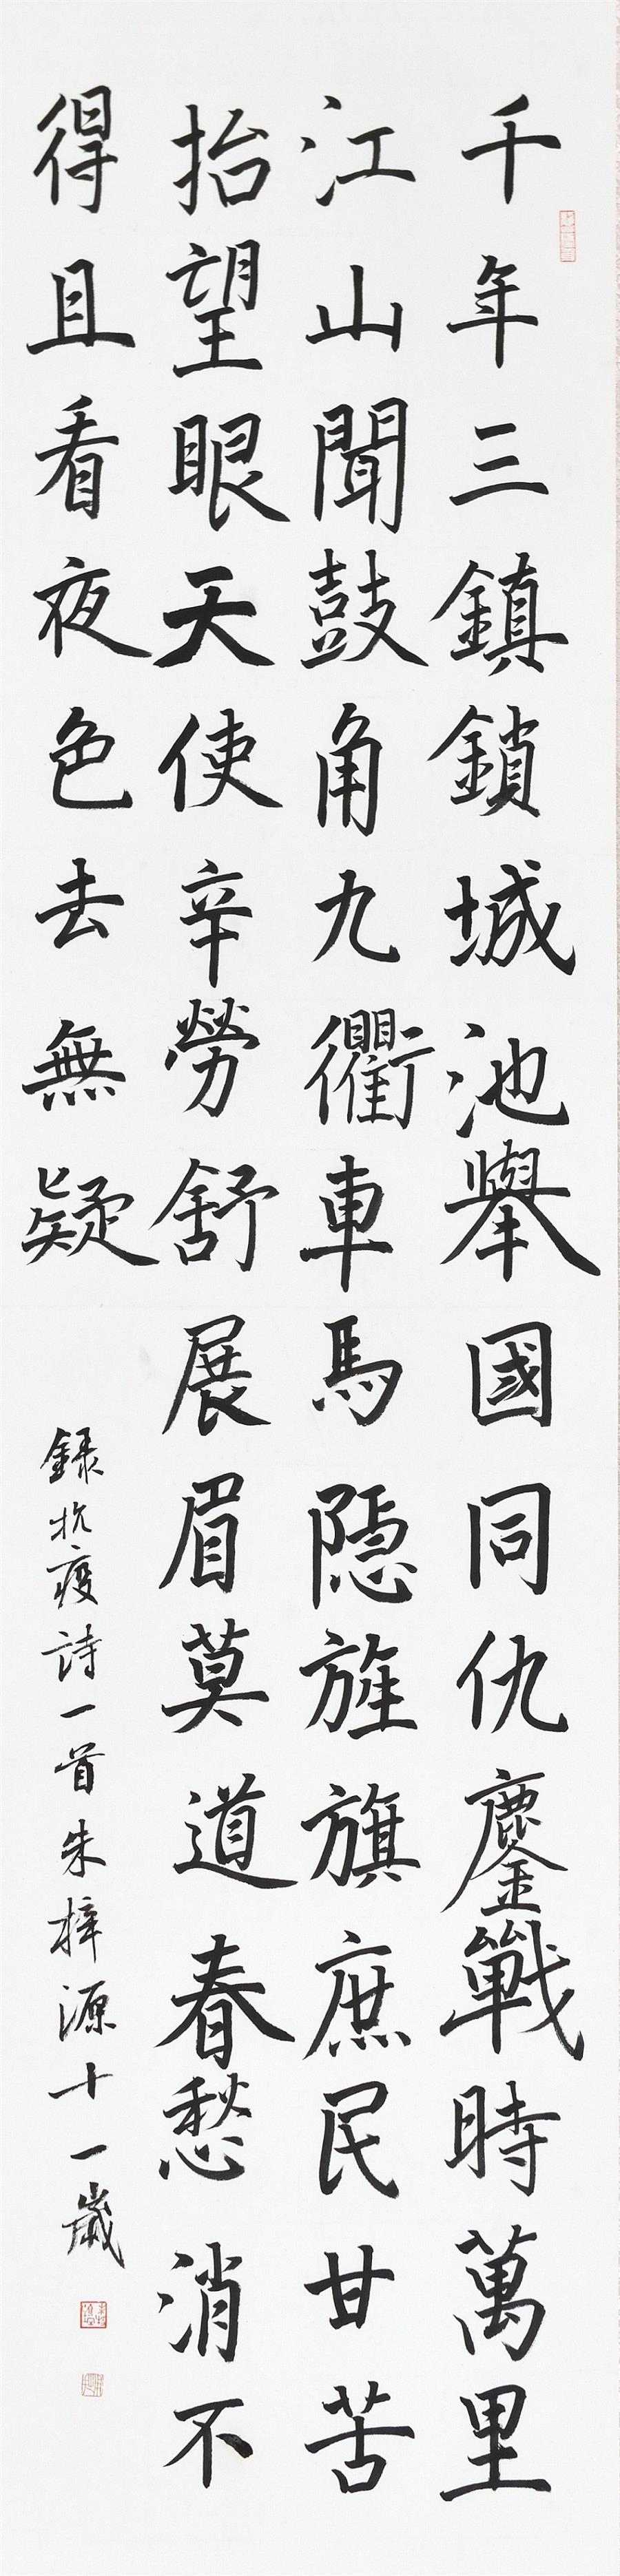 千年三鎮鎖城池舉國同仇鏖戰時萬里
江山聞鼓角九衢車馬隱旌旗庶民甘苦
抬望眼天使辛勞舒展眉莫道春愁消不
得且看夜色去無疑
録抗疫詩一首朱梓源十一歲